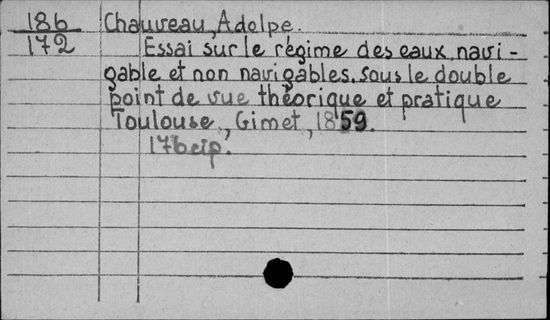 186 Chauveau, Adolpe.
172 Essai sur le régime des eaux navi-
gable et non navigables. sous le double
point de vue théorique et pratique
Toulouse, Gimet, 1859.